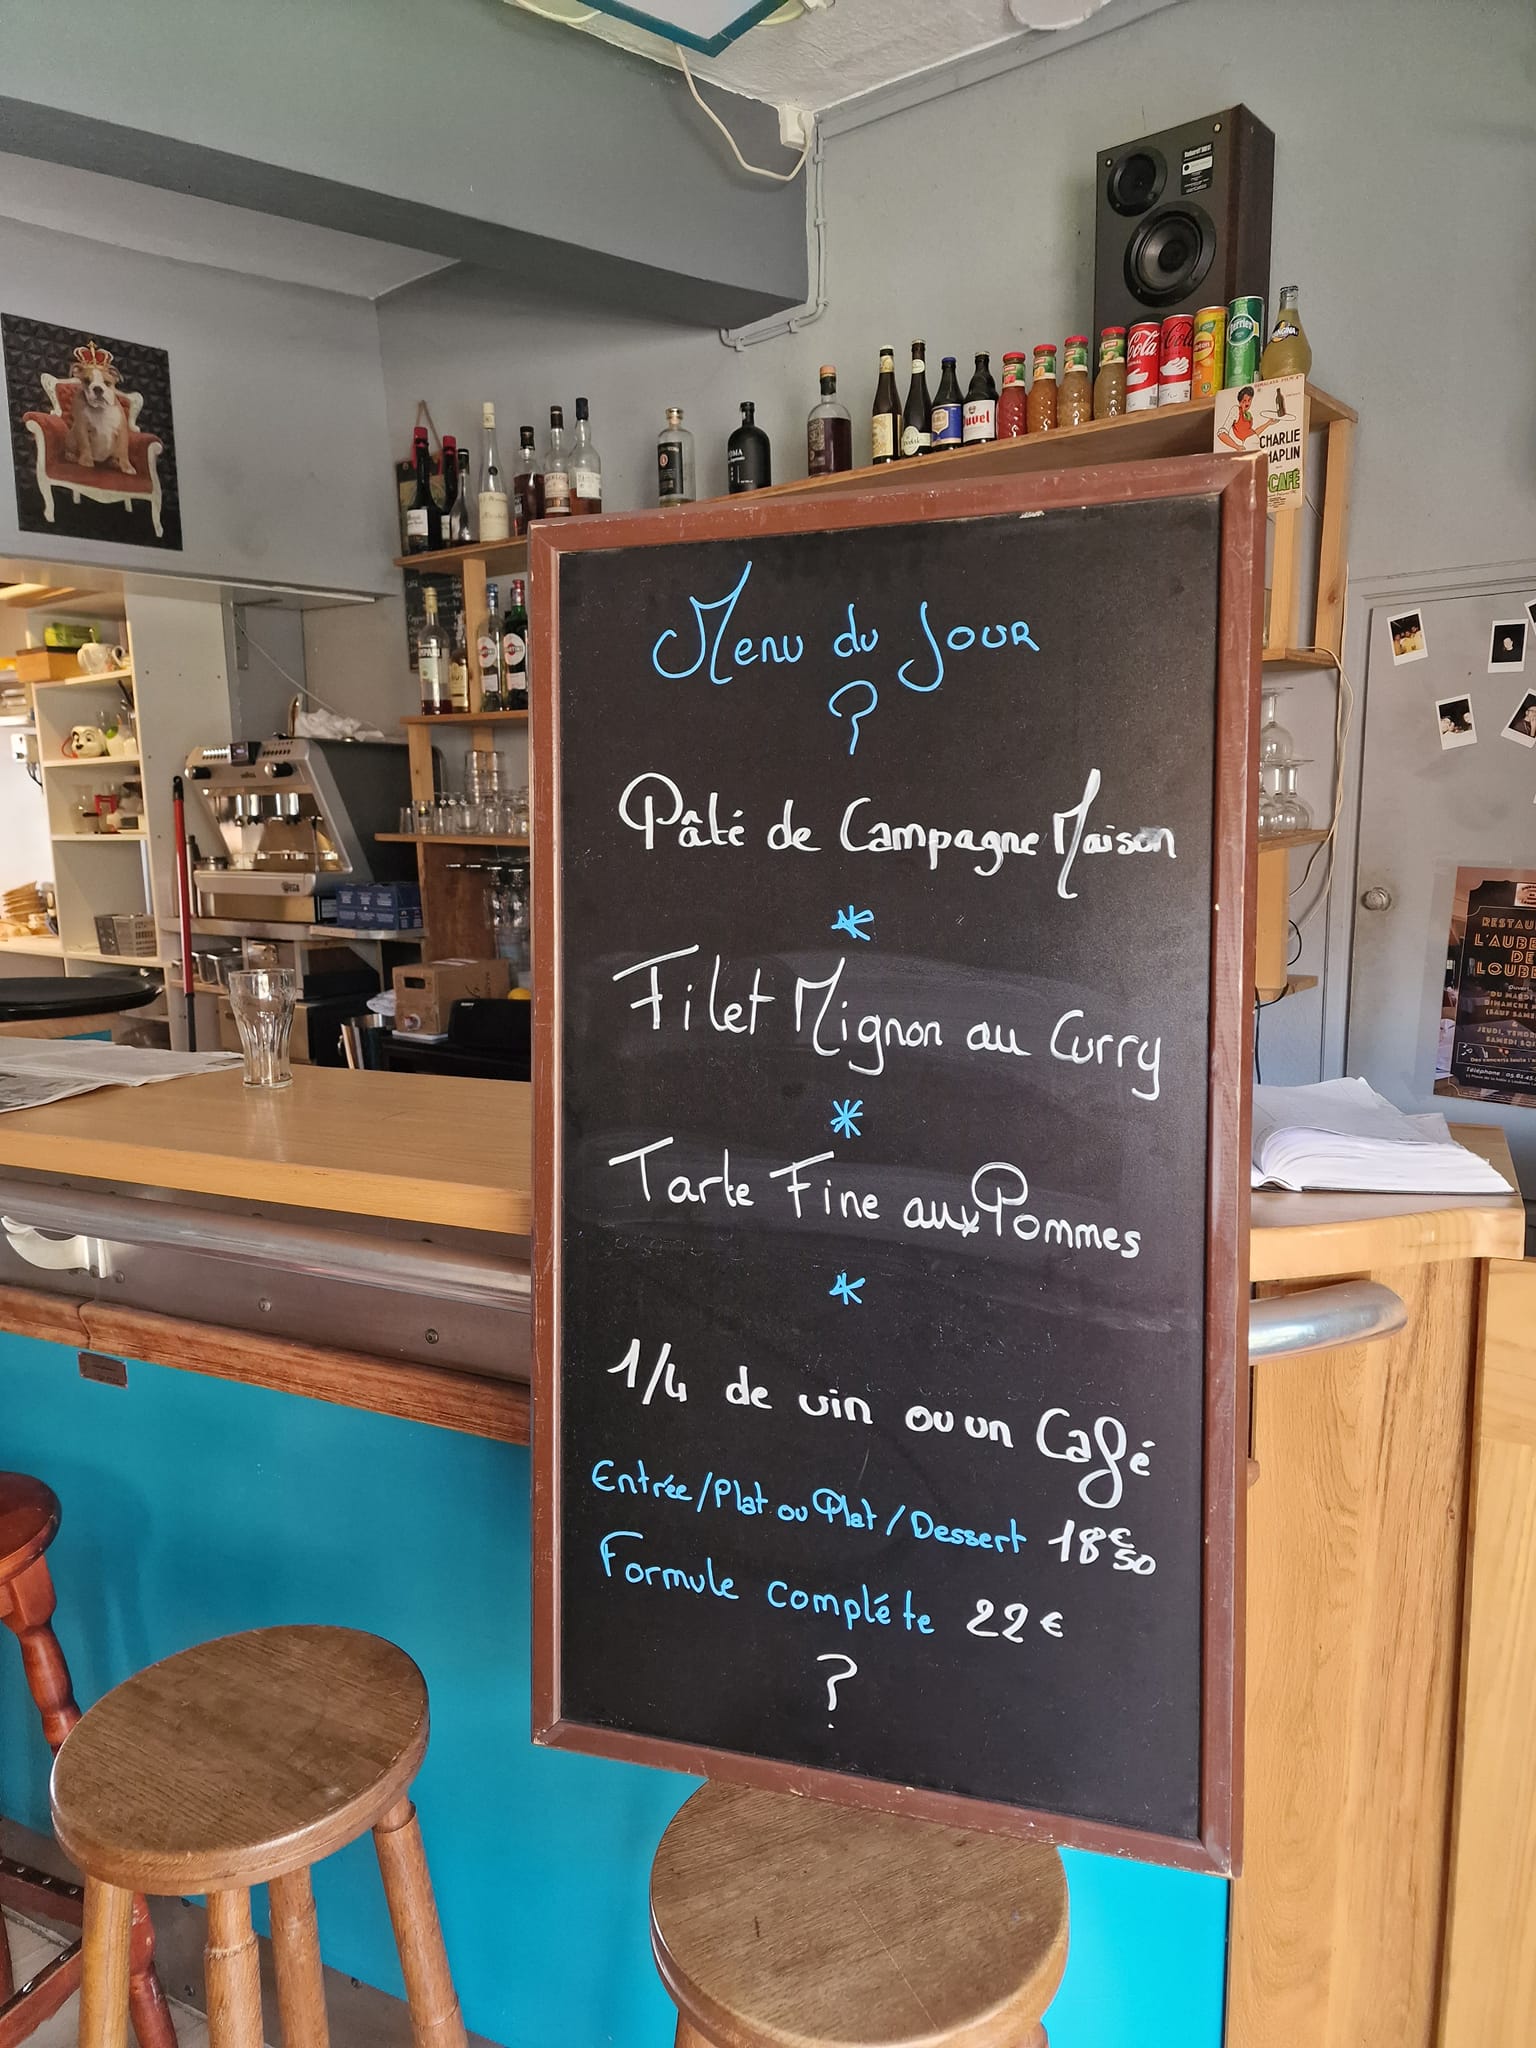 Menu du Jour
?
Pâté de Campagne Maison
*
Filet Mignon au Curry
*
Tarte Fine aux Pommes
*
1/4 de vin ou un Café
Entrée/Plat ou Plat/Dessert 18€50
Formule compléte 22€
?
CHARLIE
CHAPLIN
CAFÉ
Cola
Cola
perrier
uvel
RESTAU
L'AUBE
DE
LOUBE
Ouvert
DU MARD
DIMANCHE
(SAUF SAME
&
JEUDI, VENDR
SAMEDI SOI
Des concerts toute l'a
Téléphone : 05.61.45.